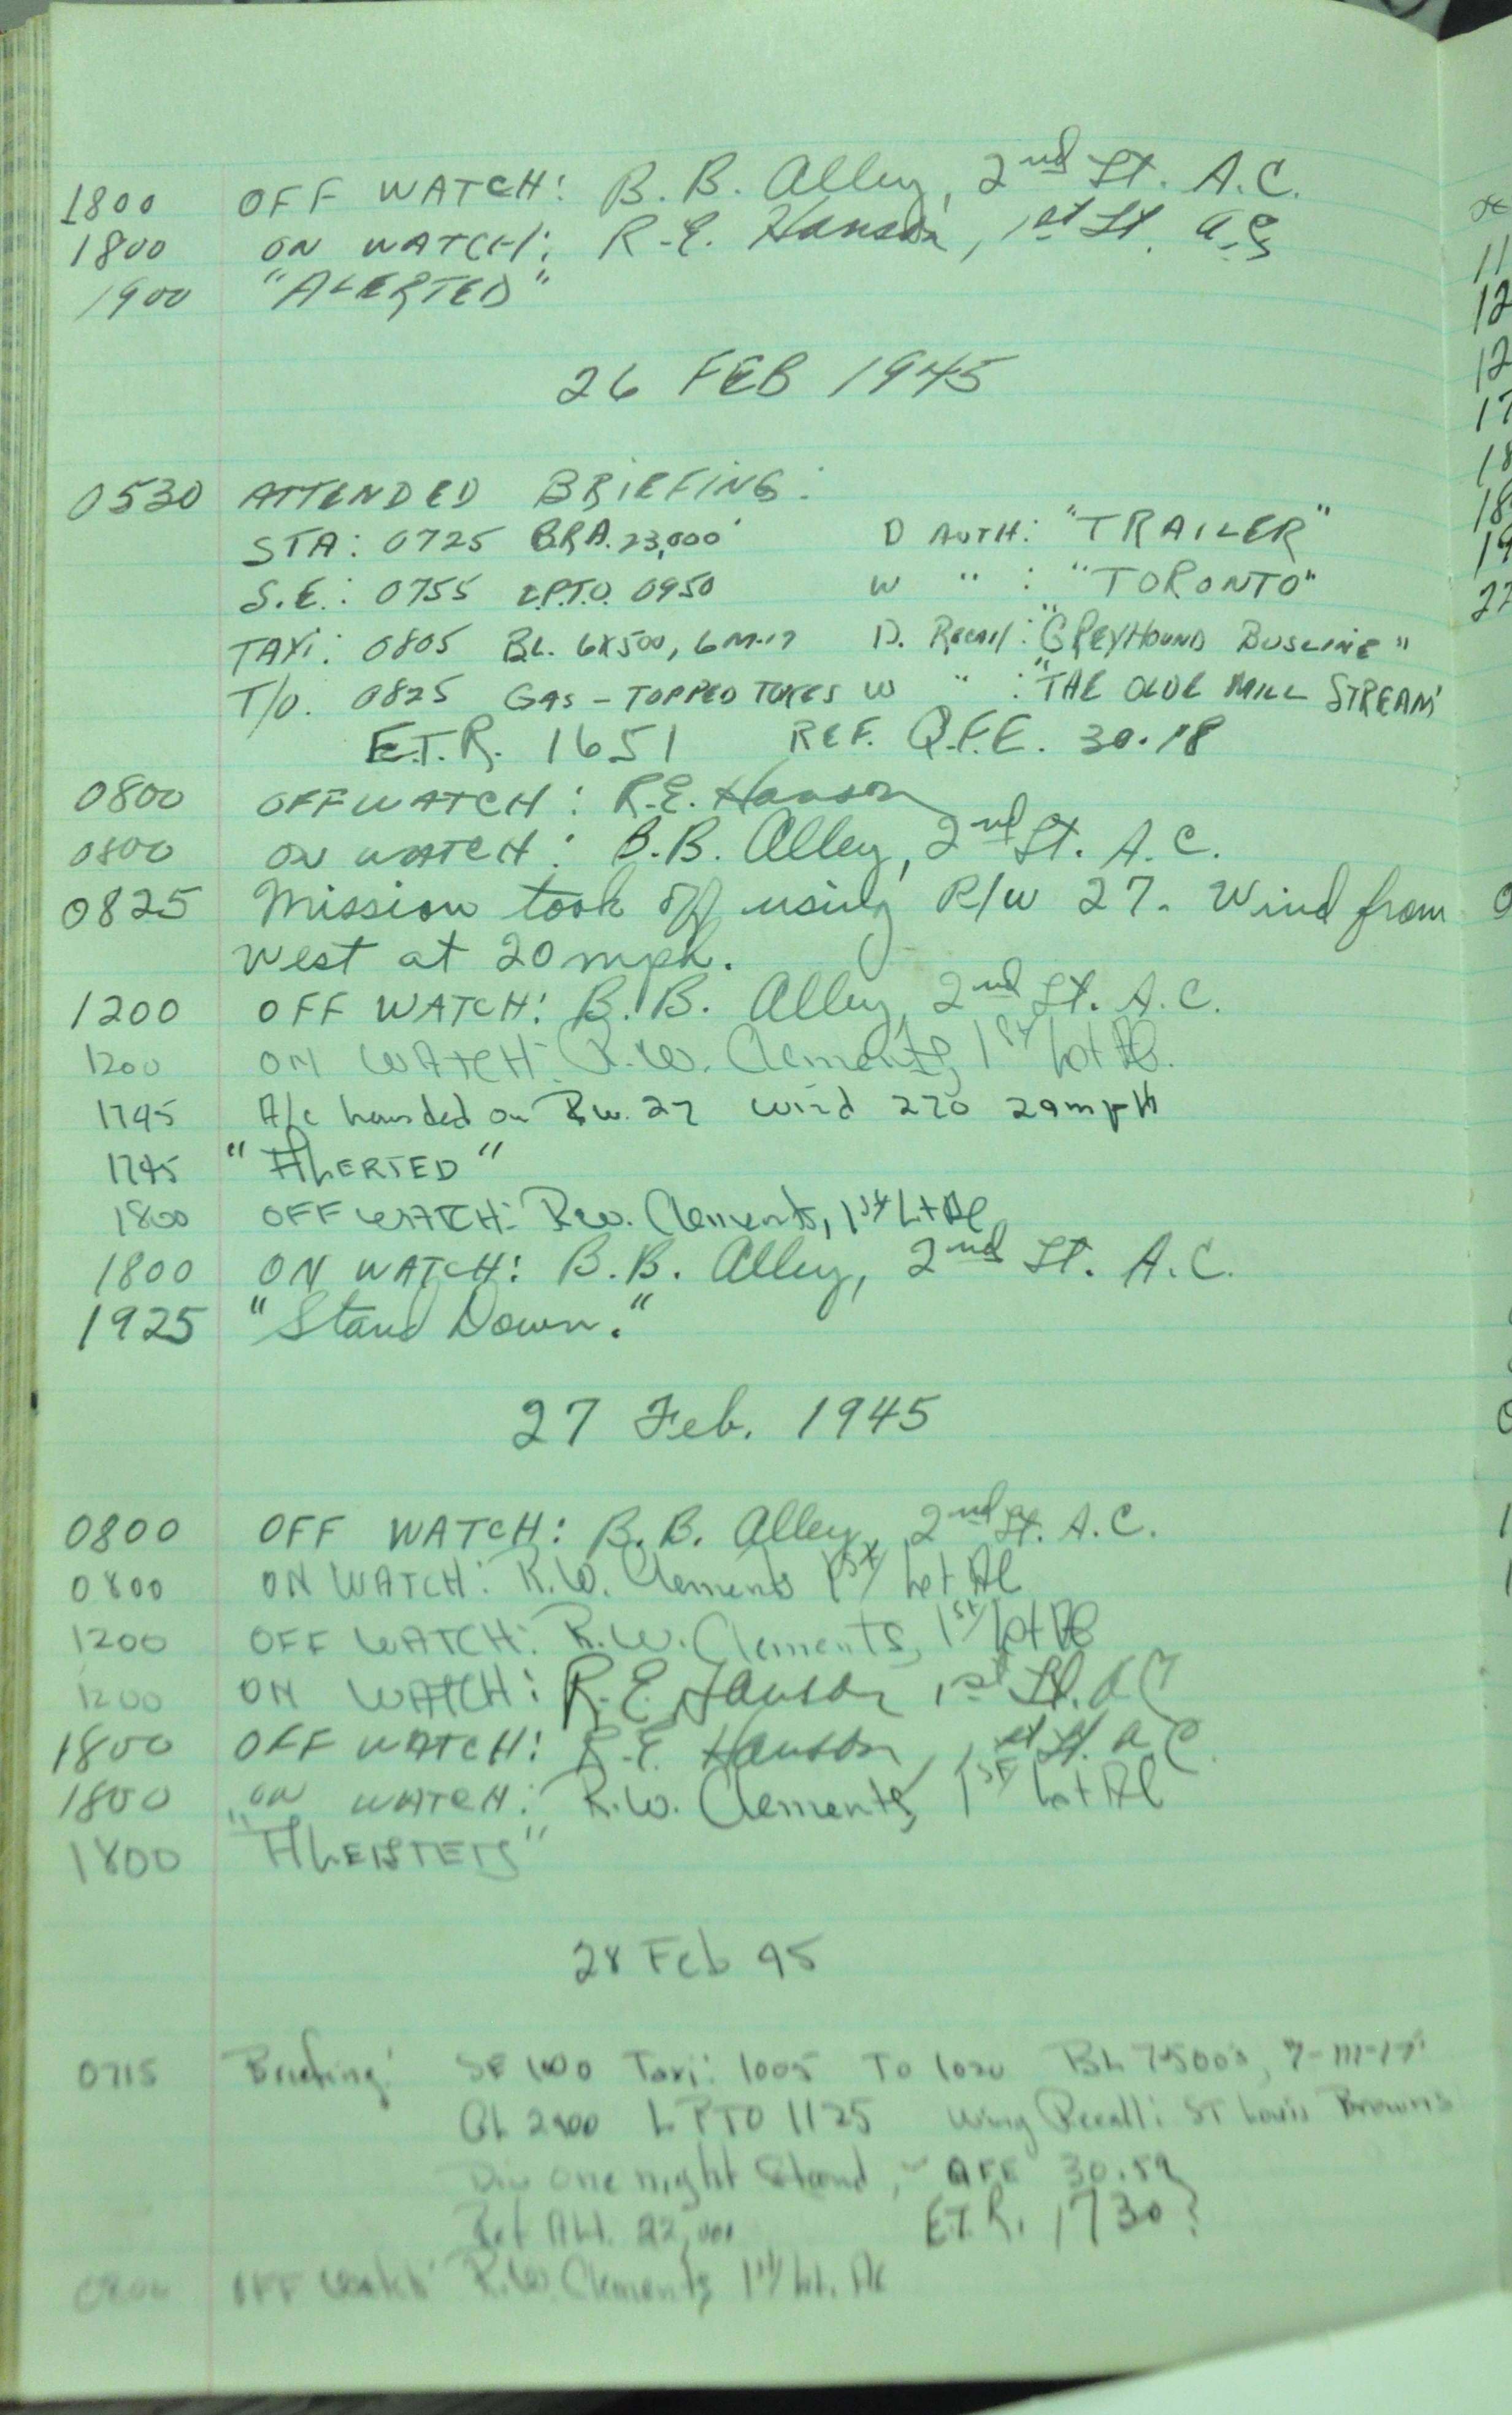 1800 OFF WATCH: B. B. Alley, 2nd Lt. A.C.
1800 ON WATCH: R.E. Hanson, 1st Lt. A.C.
1900 "ALERTED"
26 FEB 1945
0530 ATTENDED BRIEFING:
STA: 0725 BRA. 23,000' D AUTH: "TRAILER"
S.E.: 0755 L.P.T.O. 0950 W " : "TORONTO"
TAXI: 0805 BL. 6X500, 6 M-17 D. Recall: "GREYHOUND BUSLINE"
T/O. 0825 GAS - TOPPED TOKES W " : "THE OLDE MILL STREAM"
E.T.R. 1651 REF. Q.F.E. 30.18
0800 OFF WATCH: R.E. Hanson
0800 ON WATCH: B.B. Alley, 2nd Lt. A.C.
0825 Mission took off using R/W 27. Wind from
west at 20 mph.
1200 OFF WATCH: B. B. Alley, 2nd Lt. A.C.
1200 ON WATCH: R.W. Clements, 1st Lt AC.
1745 A/c landed on Rw. 27 Wind 270 29mph
1745 "ALERTED"
1800 OFF WATCH: R.W. Clements, 1st Lt AC
1800 ON WATCH: B.B. Alley, 2nd Lt. A.C.
1925 "Stand Down."
27 Feb. 1945
0800 OFF WATCH: B. B. Alley, 2nd Lt. A.C.
0800 ON WATCH: R.W. Clements 1st Lt AC
1200 OFF WATCH: R.W. Clements, 1st Lt AC
1200 ON WATCH: R.E. Hanson 1st Lt. AC
1800 OFF WATCH: R.E. Hanson, 1st Lt. A.C.
1800 ON WATCH: R.W. Clements, 1st Lt AC
1800 "ALERTED"
28 Feb 45
0715 Briefing: SE 1000 Taxi: 1005 TO 1020 BL 7-500's, 7-M-17s
LPTO 1125 Wing Recall: ST Louis Browns
Div One night Stand, QFE 30.59
Ref Alt. 22,000 E.T.R. 1730?
OFF Watch R.W. Clements 1st/Lt. AC